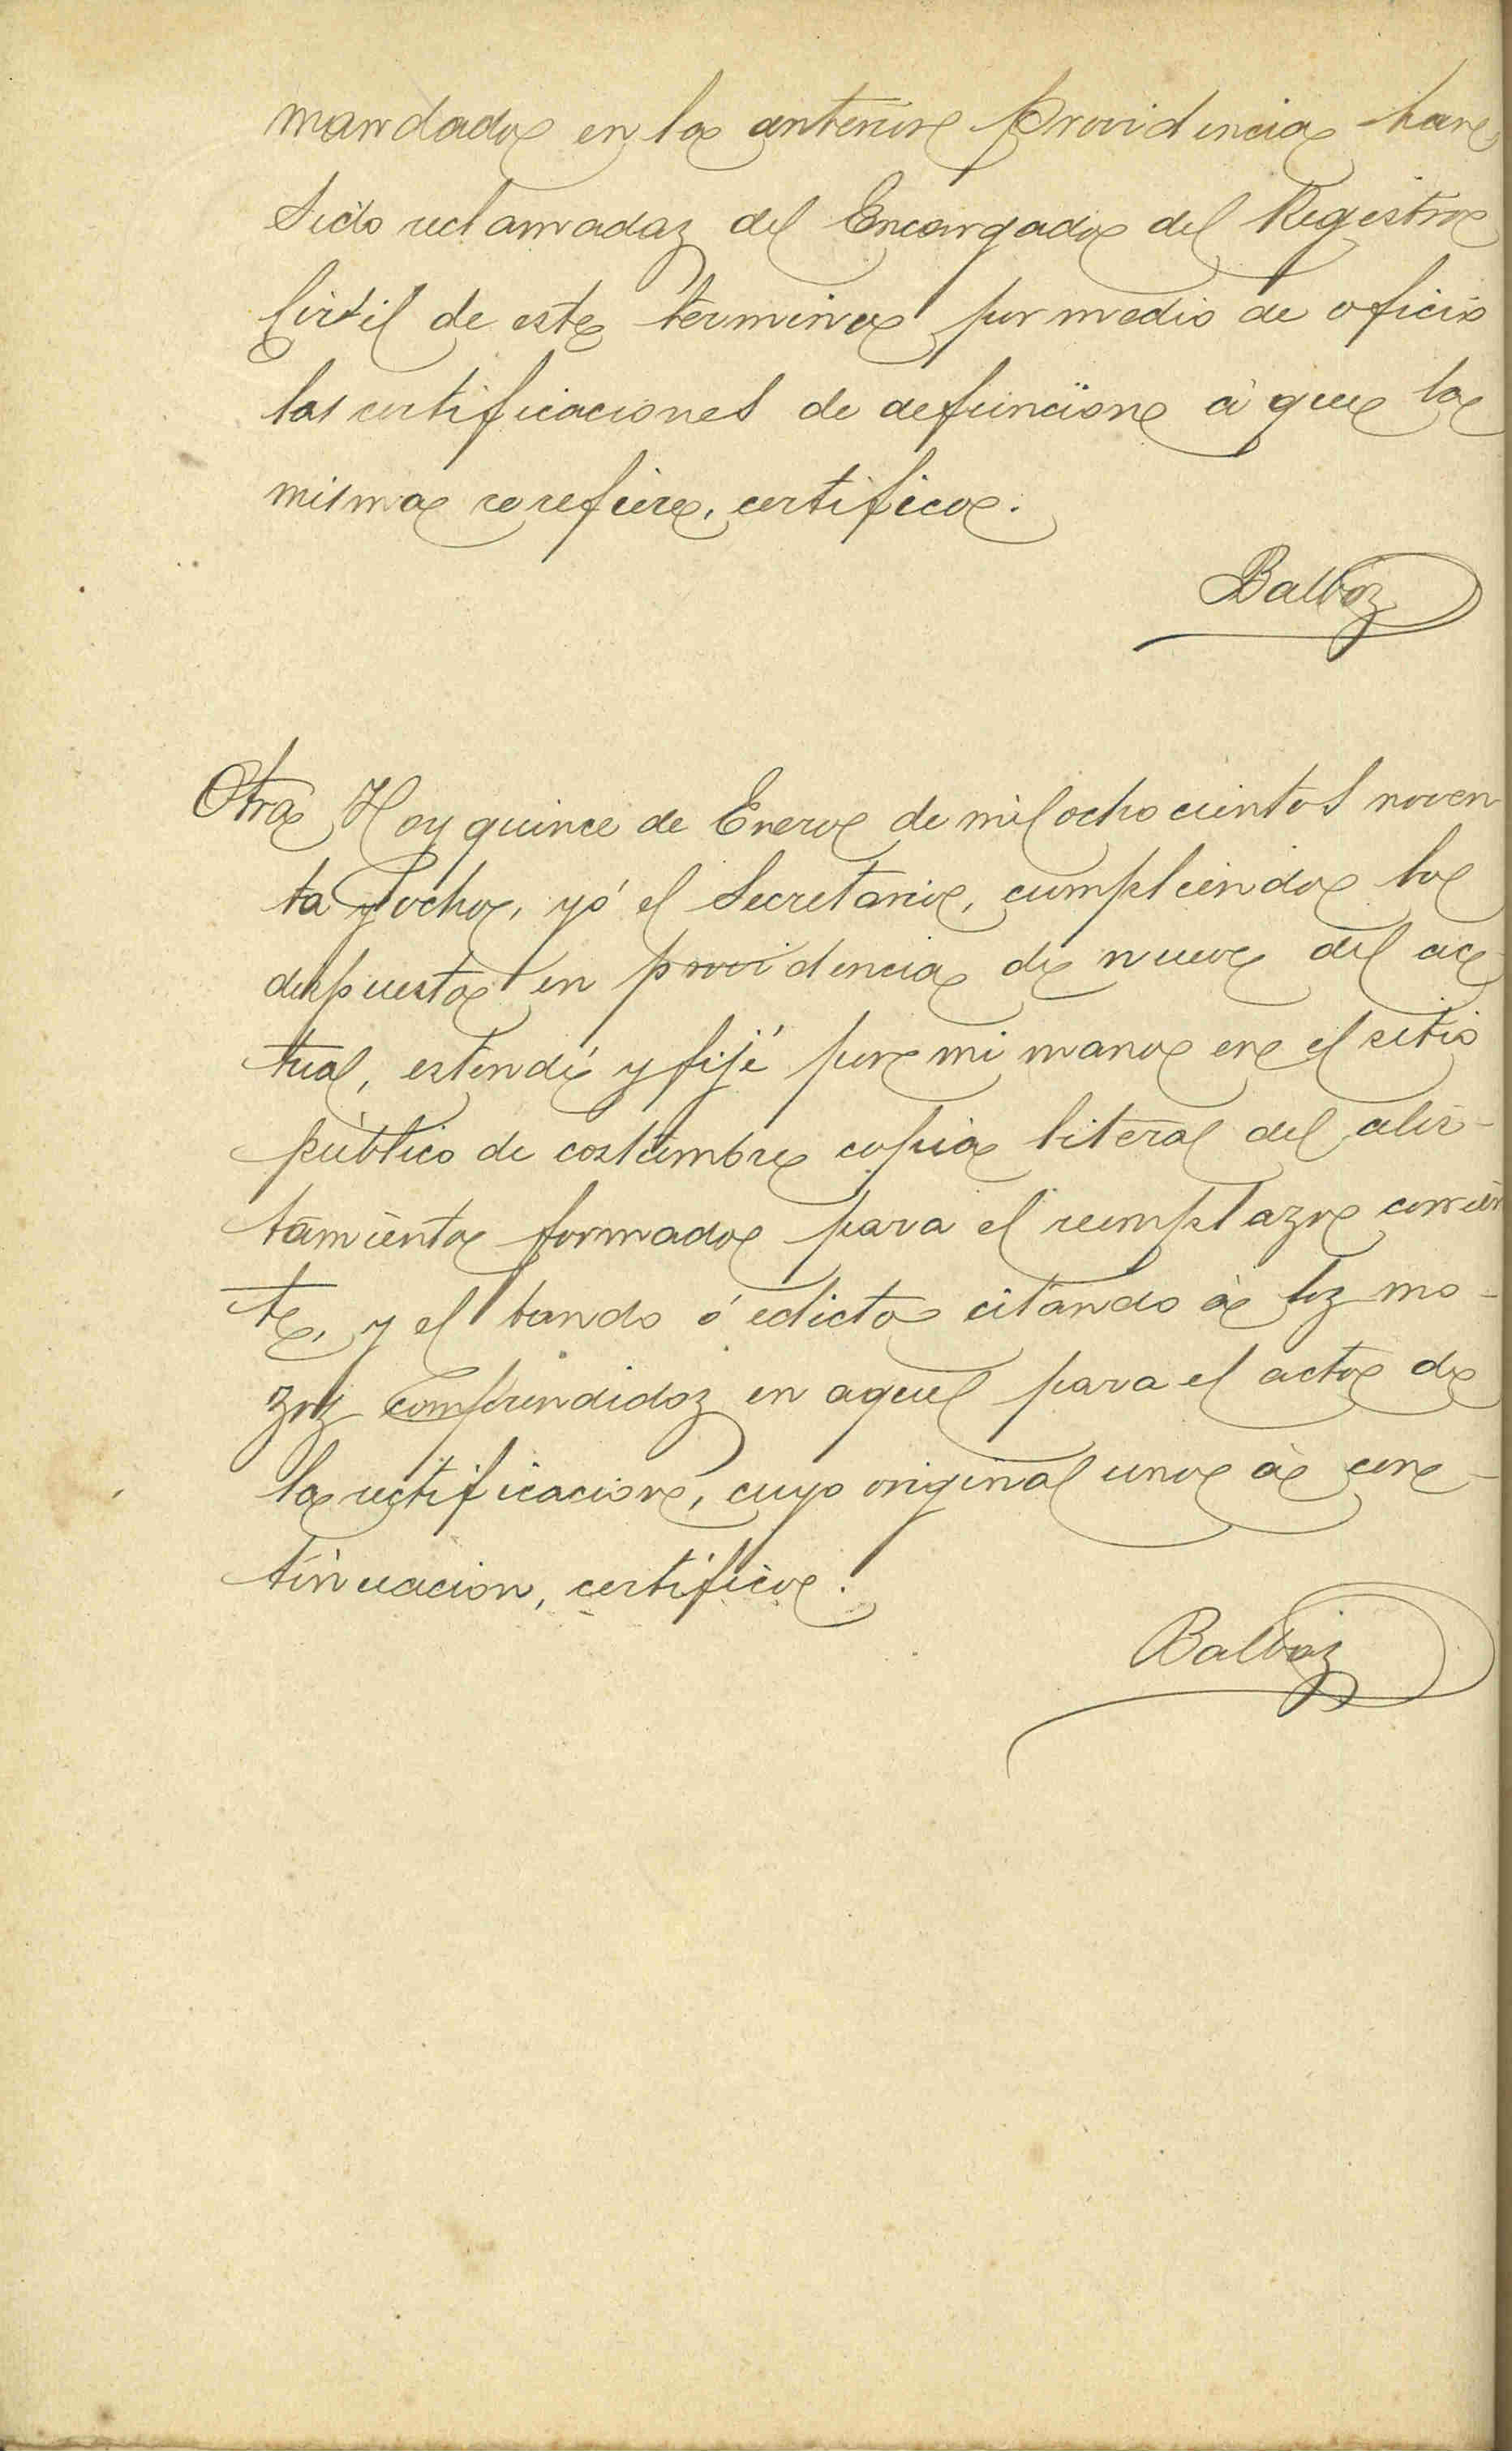 mandado en la anterior providencia han
sido reclamadas del Encargado del Registro
Civil de este término por medio de oficio
las certificaciones de defuncion à que la
misma se refiere, certifico.
Balboa
Otra Hoy quince de Enero de mil ochocientos noven
ta y ocho, yó el Secretario, cumpliendo lo
dispuesto en providencia de nueve del ac
tual, estendí y fijé por mi mano en el sitio
público de costumbre copia literal del alis-
tamiento formado para el reemplazo corrien
te, y el bando ó edicto citando à los mo-
zos comprendidos en aquel para el acto de
la rectificacion, cuyo original uno à con-
tinuacion, certifico.
Balboa